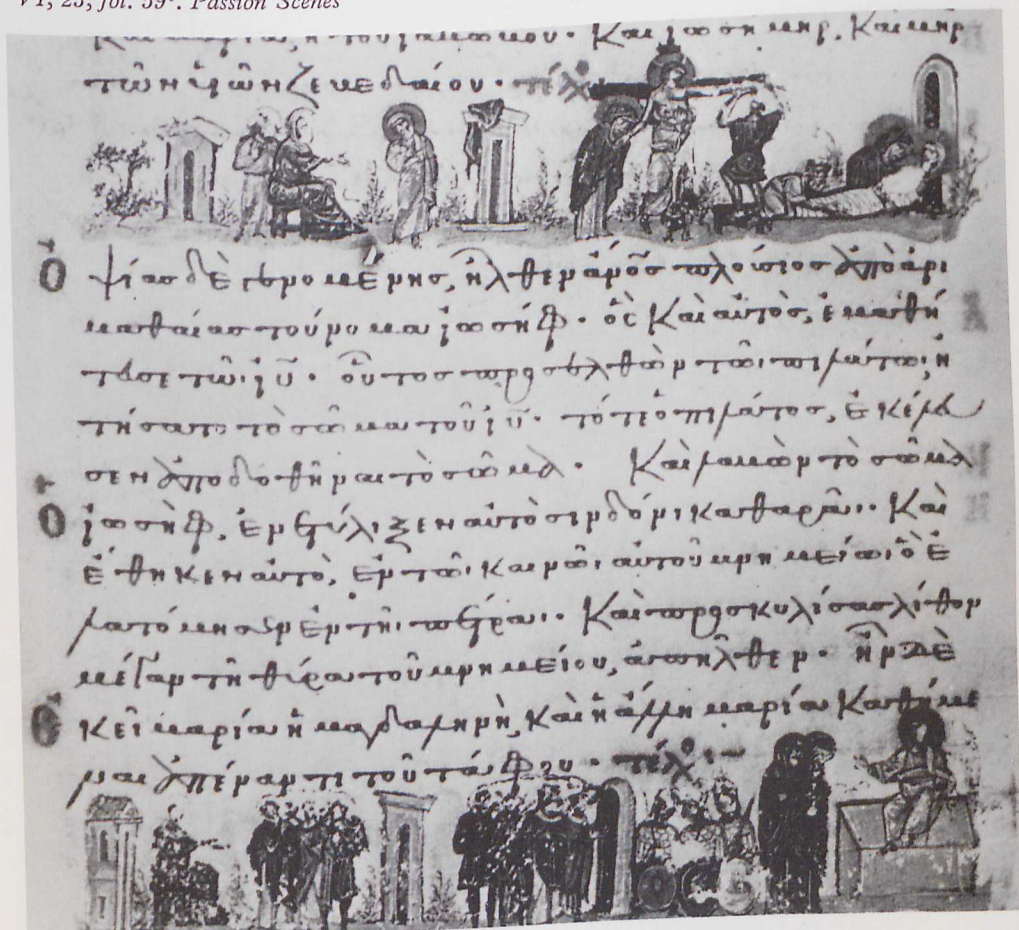 VI, 23, fol. 59ᵛ. Passion Scenes
Καὶ μαρία, ἡ τοῦ ἰακώβου· Καὶ ἰωσὴ μηρ, Καὶ μηρ
τῶν ϋἱῶν ζεβεδαίου· τέλος
Ὀψίας δὲ γενομένης, ἦλθεν ἄνος πλούσιος ἀπὸ ἀρι
μαθαίας τοὔνομα ἰωσήφ· ὃς Καὶ αὐτὸς, ἐμαθή
τευσε τῶι ἰῡ· οὗτος προσελθὼν τῶι πιλάτωι, ἠ
τήσατο τὸ σῶμα τοῦ ἰῡ· τότε ὁ πιλάτος, ἐκέλευ
σεν ἀποδοθῆναι τὸ σῶμα· Καὶ λαβὼν τὸ σῶμα
ὁ ἰωσὴφ, ἐνετύλιξεν αὐτὸ σινδόνι καθαρᾶι· Καὶ
ἔθηκεν αὐτὸ, ἐν τῶι καινῶι αὐτοῦ μνημείωι, ὃ ἐ
λατόμησεν ἐν τῆι πέτραι· Καὶ προσκυλίσας λίθον
μέγαν τῆ θύρα τοῦ μνημείου, ἀπῆλθεν· ἦν δὲ
ἐκεῖ μαρία ἡ μαγδαληνὴ, Καὶ ἡ ἄλλη μαρία Καθήμε
ναι ἀπέναντι τοῦ τάφου· τέλος